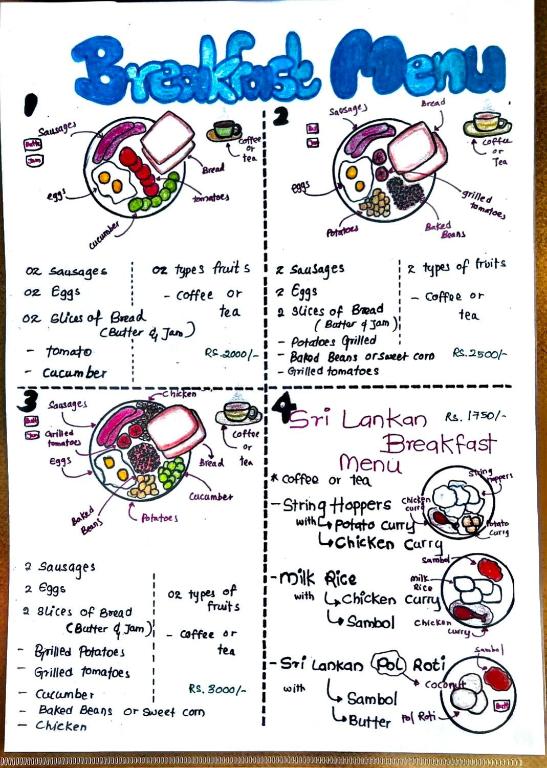 Breakfast Menu
1
Sausages
Butter
Jam
eggs
cucumber
tomatoes
Bread
coffee
or
tea
02 sausages
02 Eggs
02 Slices of Bread
(Butter & Jam)
- tomato
- cucumber
02 types fruits
- coffee or
tea
RS.2000/-
2
Sausages
Bread
Jam
eggs
Potatoes
Baked
Beans
grilled
tomatoes
coffee
or
Tea
2 Sausages
2 Eggs
2 Slices of Bread
(Butter & Jam)
- Potatoes Grilled
- Baked Beans or sweet corn
- Grilled tomatoes
2 types of fruits
- Coffee or
tea
RS.2500/-
3
Chicken
Sausages
Grilled
tomatoes
Eggs
Baked
Beans
Potatoes
Cucumber
Bread
Coffee
or
tea
2 Sausages
2 Eggs
2 Slices of Bread
(Butter & Jam)
- Grilled Potatoes
- Grilled tomatoes
- Cucumber
- Baked Beans or sweet corn
- Chicken
02 types of
fruits
- coffee or
tea
RS.3000/-
4
Sri Lankan
Rs. 1750/-
Breakfast
Menu
* coffee or tea
- String Hoppers
with Potato curry
Chicken Curry
String
Hoppers
Chicken
curry
Potato
curry
- Milk Rice
with Chicken Curry
Sambol
Sambol
milk
Rice
Chicken
curry
- Sri Lankan Pol Roti
Coconut
with
Sambol
Butter
Sambol
Pol Roti